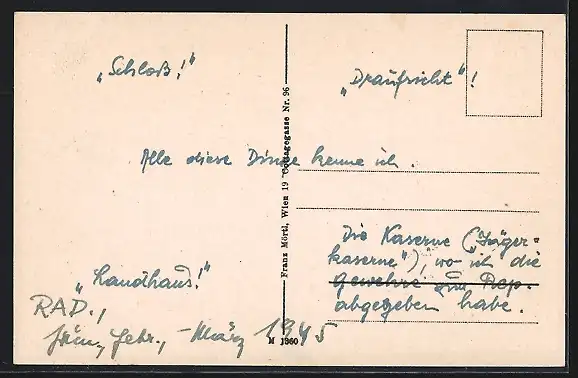 „Schloß!“
„Draufsicht“!
Alle diese Dinge kenne ich.
Die Kaserne („Jäger=
kaserne“), wo ich die
Gewehre zum Rep.
abgegeben habe.
„Landhaus!“
RAD.,
Jän., Febr., – März 1945
Franz Mörtl, Wien 19 Cottagegasse Nr. 96
M 1360